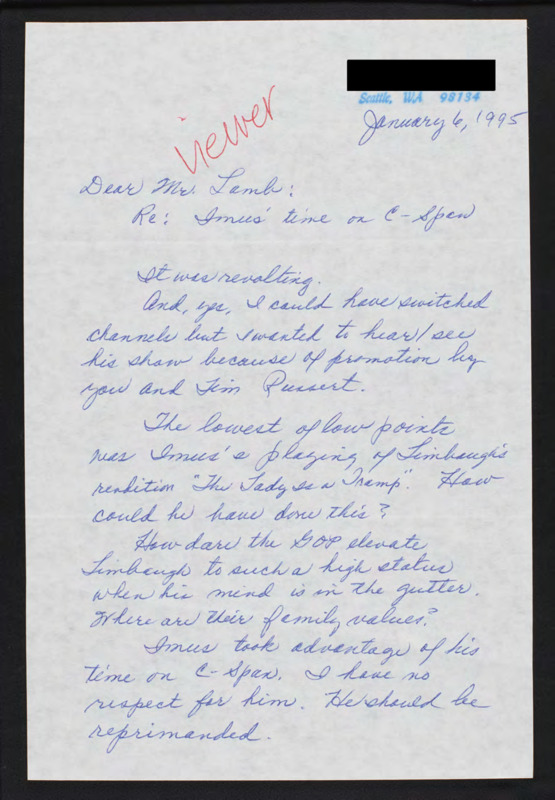 Seattle, WA 98134
January 6, 1995
viewer
Dear Mr. Lamb:
Re: Imus' time on C-Span
It was revolting.
And, yes, I could have switched
channels but I wanted to hear/see
his show because of promotion by
you and Tim Russert.
The lowest of low points
was Imus's playing of Limbaugh's
rendition "The Lady Is a Tramp". How
could he have done this?
How dare the GOP elevate
Limbaugh to such a high status
when his mind is in the gutter.
Where are their family values?
Imus took advantage of his
time on C-Span. I have no
respect for him. He should be
reprimanded.